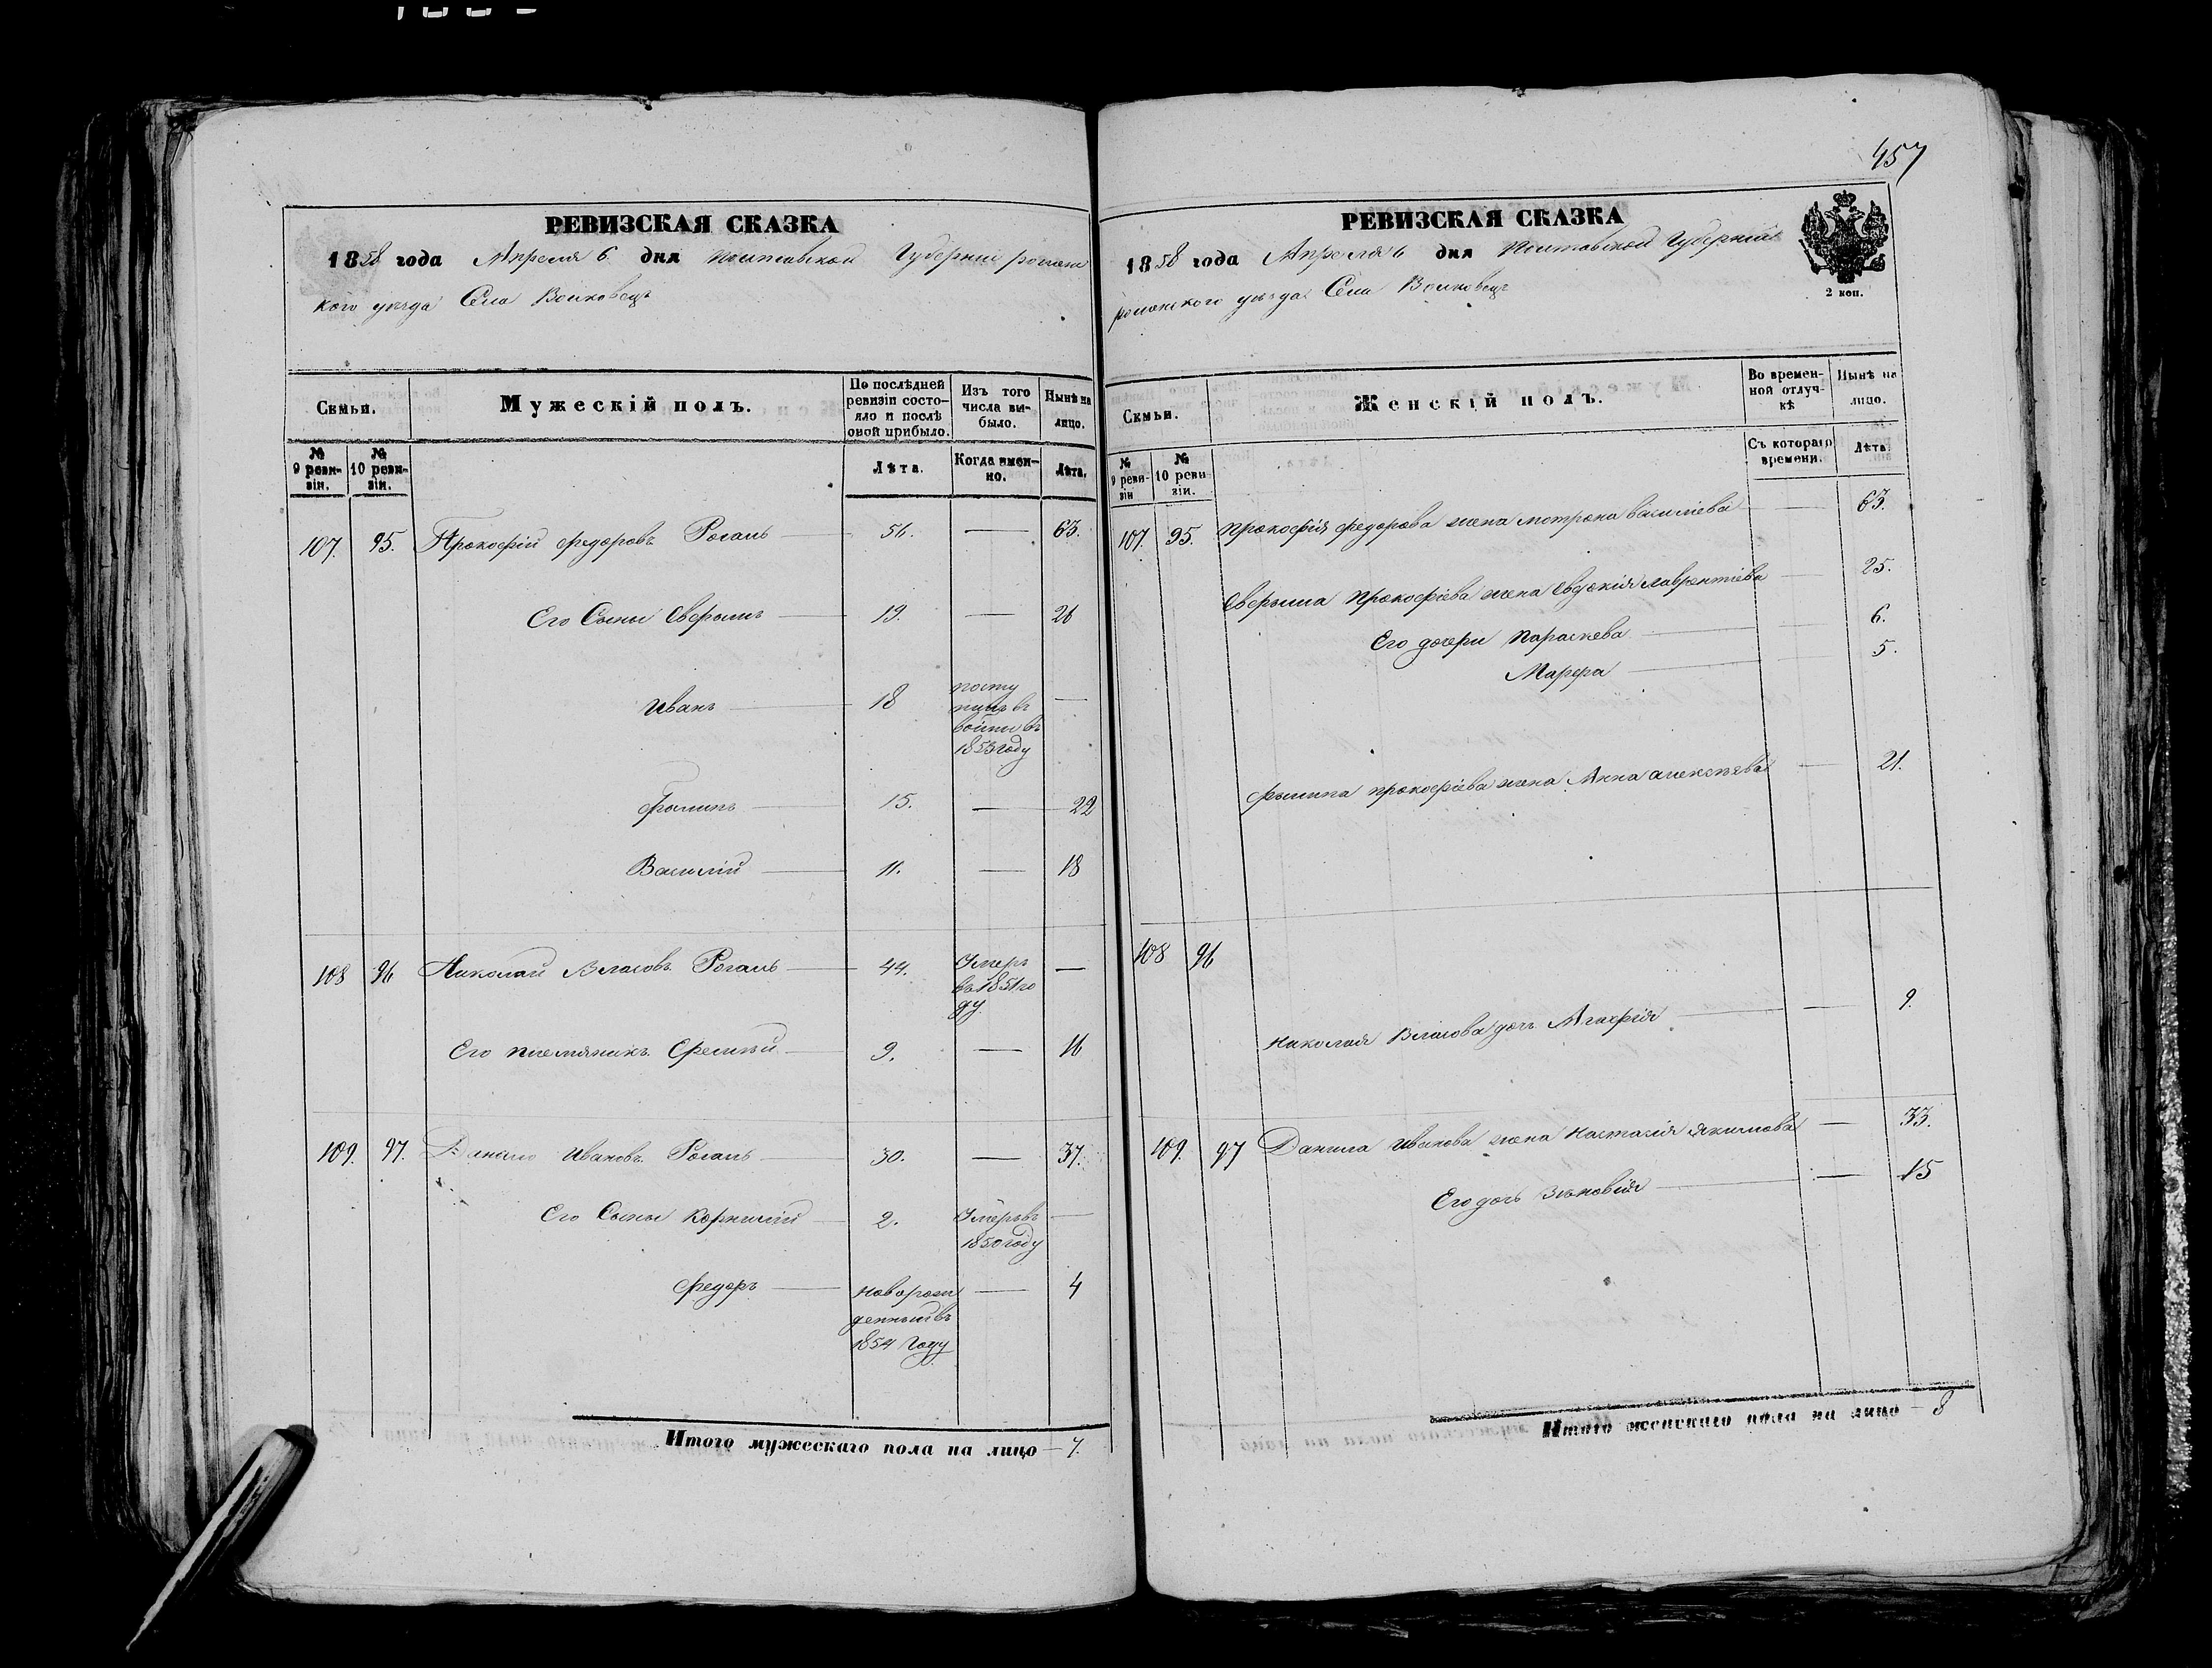 457
РЕВИЗСКАЯ СКАЗКА
1858 года Апреля 6 дня Полтавской Губернии ромен
ского уезда Села Волковецъ
Семьи.
Мужескій полъ.
По послѣдней ревизіи состояло и послѣ оной прибыло.
Изъ того числа выбыло.
Нынѣ на лицо.
№ 9 ревизіи.
№ 10 ревизіи.
Лѣта.
Когда именно.
Лѣта.
107. 95. Прокофій Федоровъ Рогаль 56. — 63.
Его Сыны Сверьянъ 19. — 26
Иванъ 18 посту
пилъ в
войти въ
1853 году —
Филипъ 15. — 22
Василій 11. — 18
108 96 Николай Власовъ Рогаль 44. Умеръ
въ 1851 го
ду —
Его племяникъ Єремѣй 9. — 16
109. 97. Данило Ивановъ Рогаль 30. — 37.
Его Сыны Корнилій 2. Умеръ въ
1850 году —
Федоръ новорож
денный въ
1854 году — 4
Итого мужескаго пола на лицо — 7.
РЕВИЗСКАЯ СКАЗКА
1858 года Апреля 6 дня Полтавской Губерніи
роменского уезда Села Волковецъ
2 коп.
Семьи.
Женскій полъ.
Во временной отлучкѣ
Нынѣ на лицо.
№ 9 ревизіи
№ 10 ревизіи.
Съ котораго времени.
Лѣта.
107. 95. Прокофія Федорова жена мотрона васильева — 63.
Сверьяна Прокофіева жена Евдокія лаврентіева — 25.
Его дочери Параскева 6.
Марфа 5.
Филипа прокофіева жена Анна алексѣева — 21.
108 96
Николая Власова дочь Агафія — 9.
109. 97 Данила Иванова жена Настасія якимова — 33.
Его дочь Зѣновія — 15
Итого женскаго пола на лицо — 8